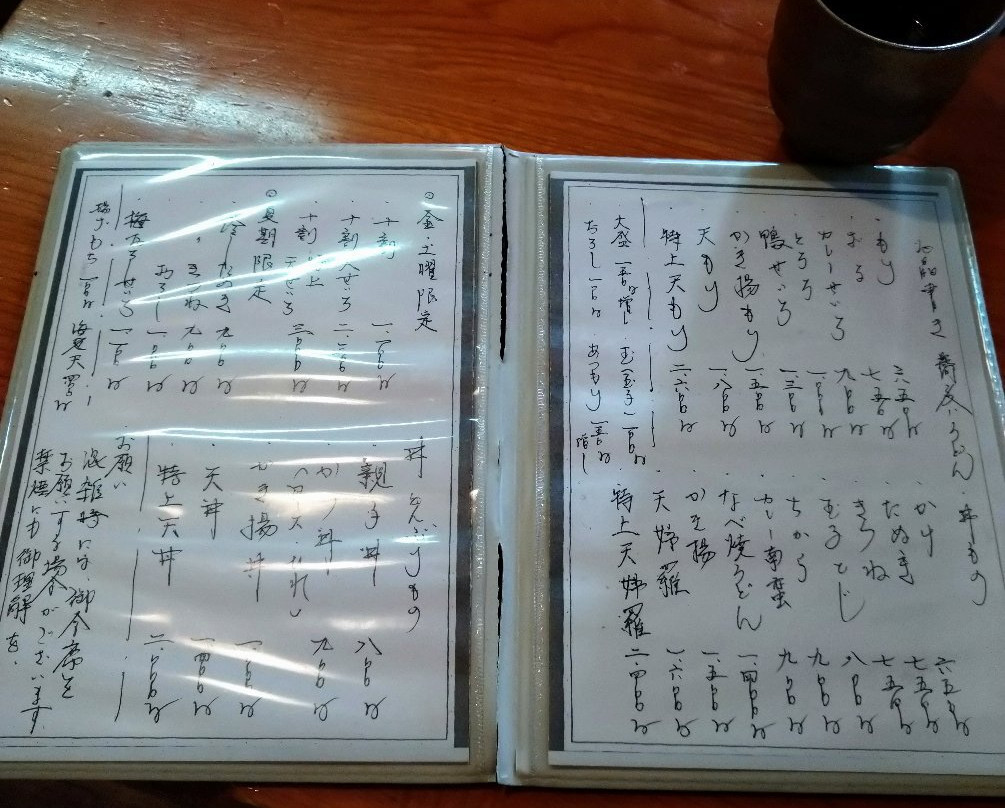 お品書き 蕎麦・うどん・丼もの
もり 六五〇円
ざる 七五〇円
カレーせいろ 九〇〇円
とろろ 一、一〇〇円
鴨せいろ 一、三〇〇円
かき揚もり 一、五〇〇円
天もり 一、八〇〇円
特上天もり 二、六〇〇円
大盛 増し 玉子 一〇〇円
おろし 一〇〇円 あつもり 増し
かけ 六五〇円
たぬき 七五〇円
きつね 七五〇円
玉子とじ 八〇〇円
ちから 九〇〇円
カレー南蛮 九〇〇円
なべ焼うどん 一、四〇〇円
かき揚 一、五〇〇円
天婦羅 一、六〇〇円
特上天婦羅 二、四〇〇円
○金・土曜限定
十割
十割 せいろ
十割 天せいろ 三、
○夏期限定
冷したぬき 九〇〇円
〃 きつね 九〇〇円
〃 おろし 一、一〇〇円
梅おろせいろ 一、一〇〇円
揚げもち 海老天
丼 どんぶりもの
親子丼 八〇〇円
カツ丼 九〇〇円
かき揚丼
天丼 一、四〇〇円
特上天丼 二、〇〇〇円
お願い
混雑時には、御合席を
お願いする場合がございます
禁煙にも御理解を、